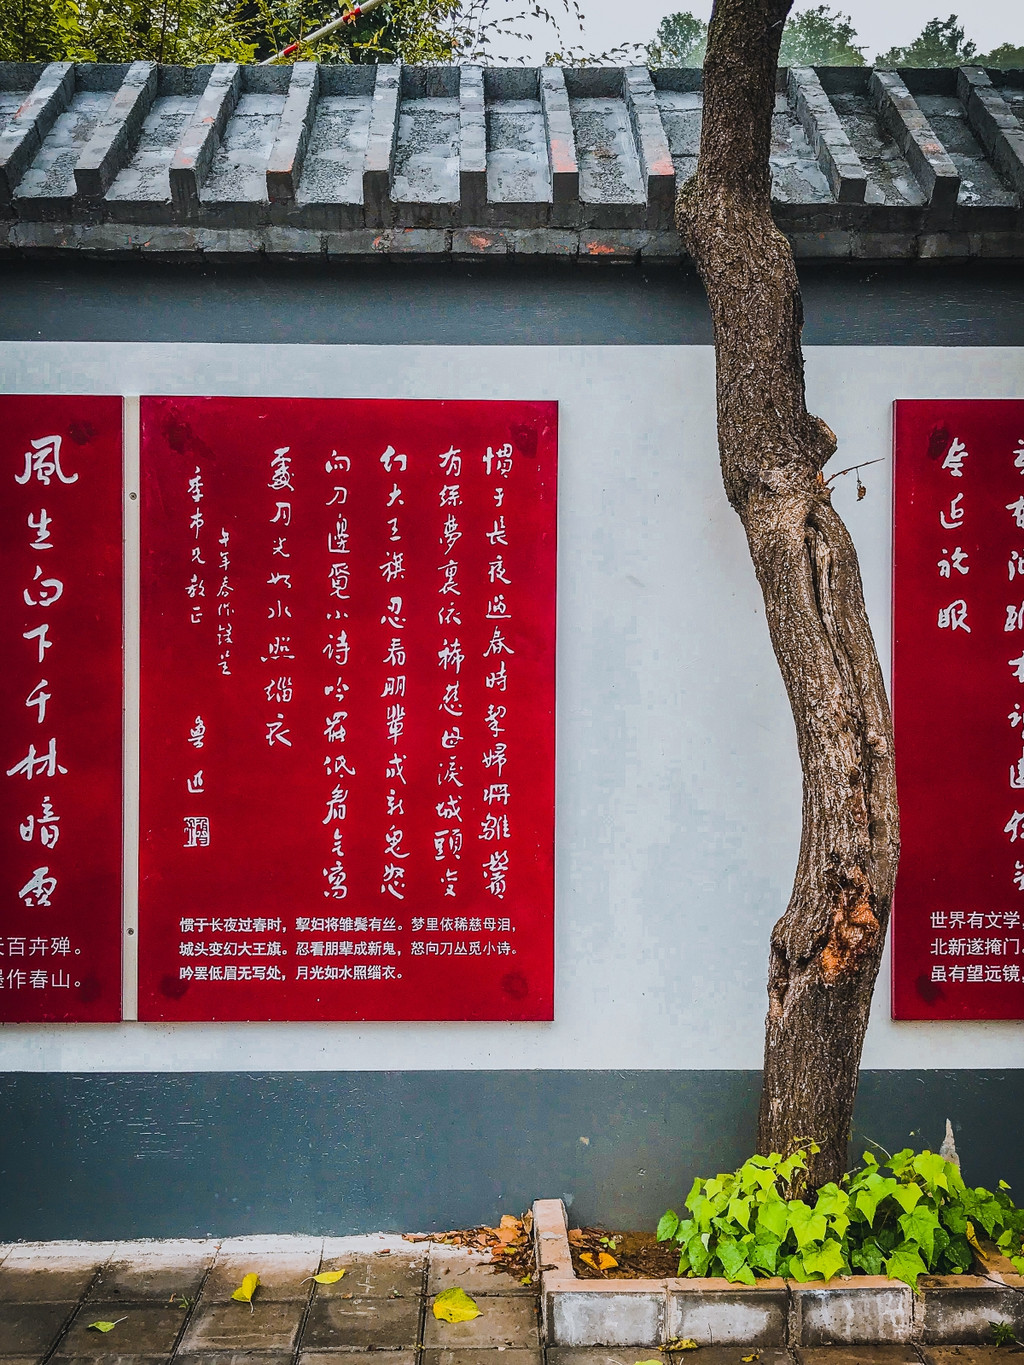 風生白下千林暗
百卉殚。
作春山。
慣于長夜過春時挈婦將雛鬢
有絲夢裏依稀慈母淚城頭變
幻大王旗忍看朋輩成新鬼怒
向刀邊覓小詩吟罷低眉无寫
處月光如水照緇衣
午年春作錄呈
季市兄教正
魯迅
惯于长夜过春时，挈妇将雏鬓有丝。梦里依稀慈母泪，
城头变幻大王旗。忍看朋辈成新鬼，怒向刀丛觅小诗。
吟罢低眉无写处，月光如水照缁衣。
奈近視眼
世界有文学，
北新遂掩门。
虽有望远镜，